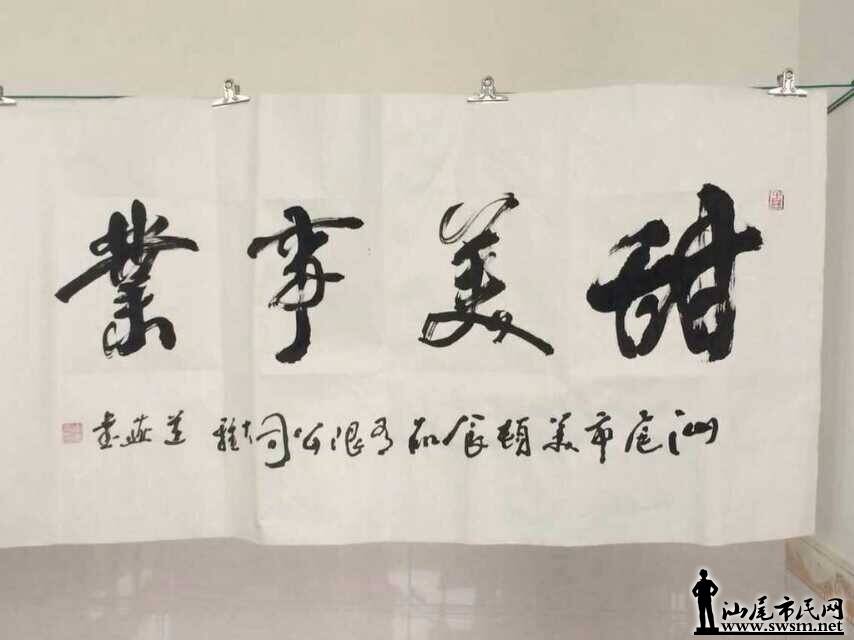 甜美事業
汕尾市美頓食品有限公司大雅 道燕書
汕尾市民网
www.swsm.net